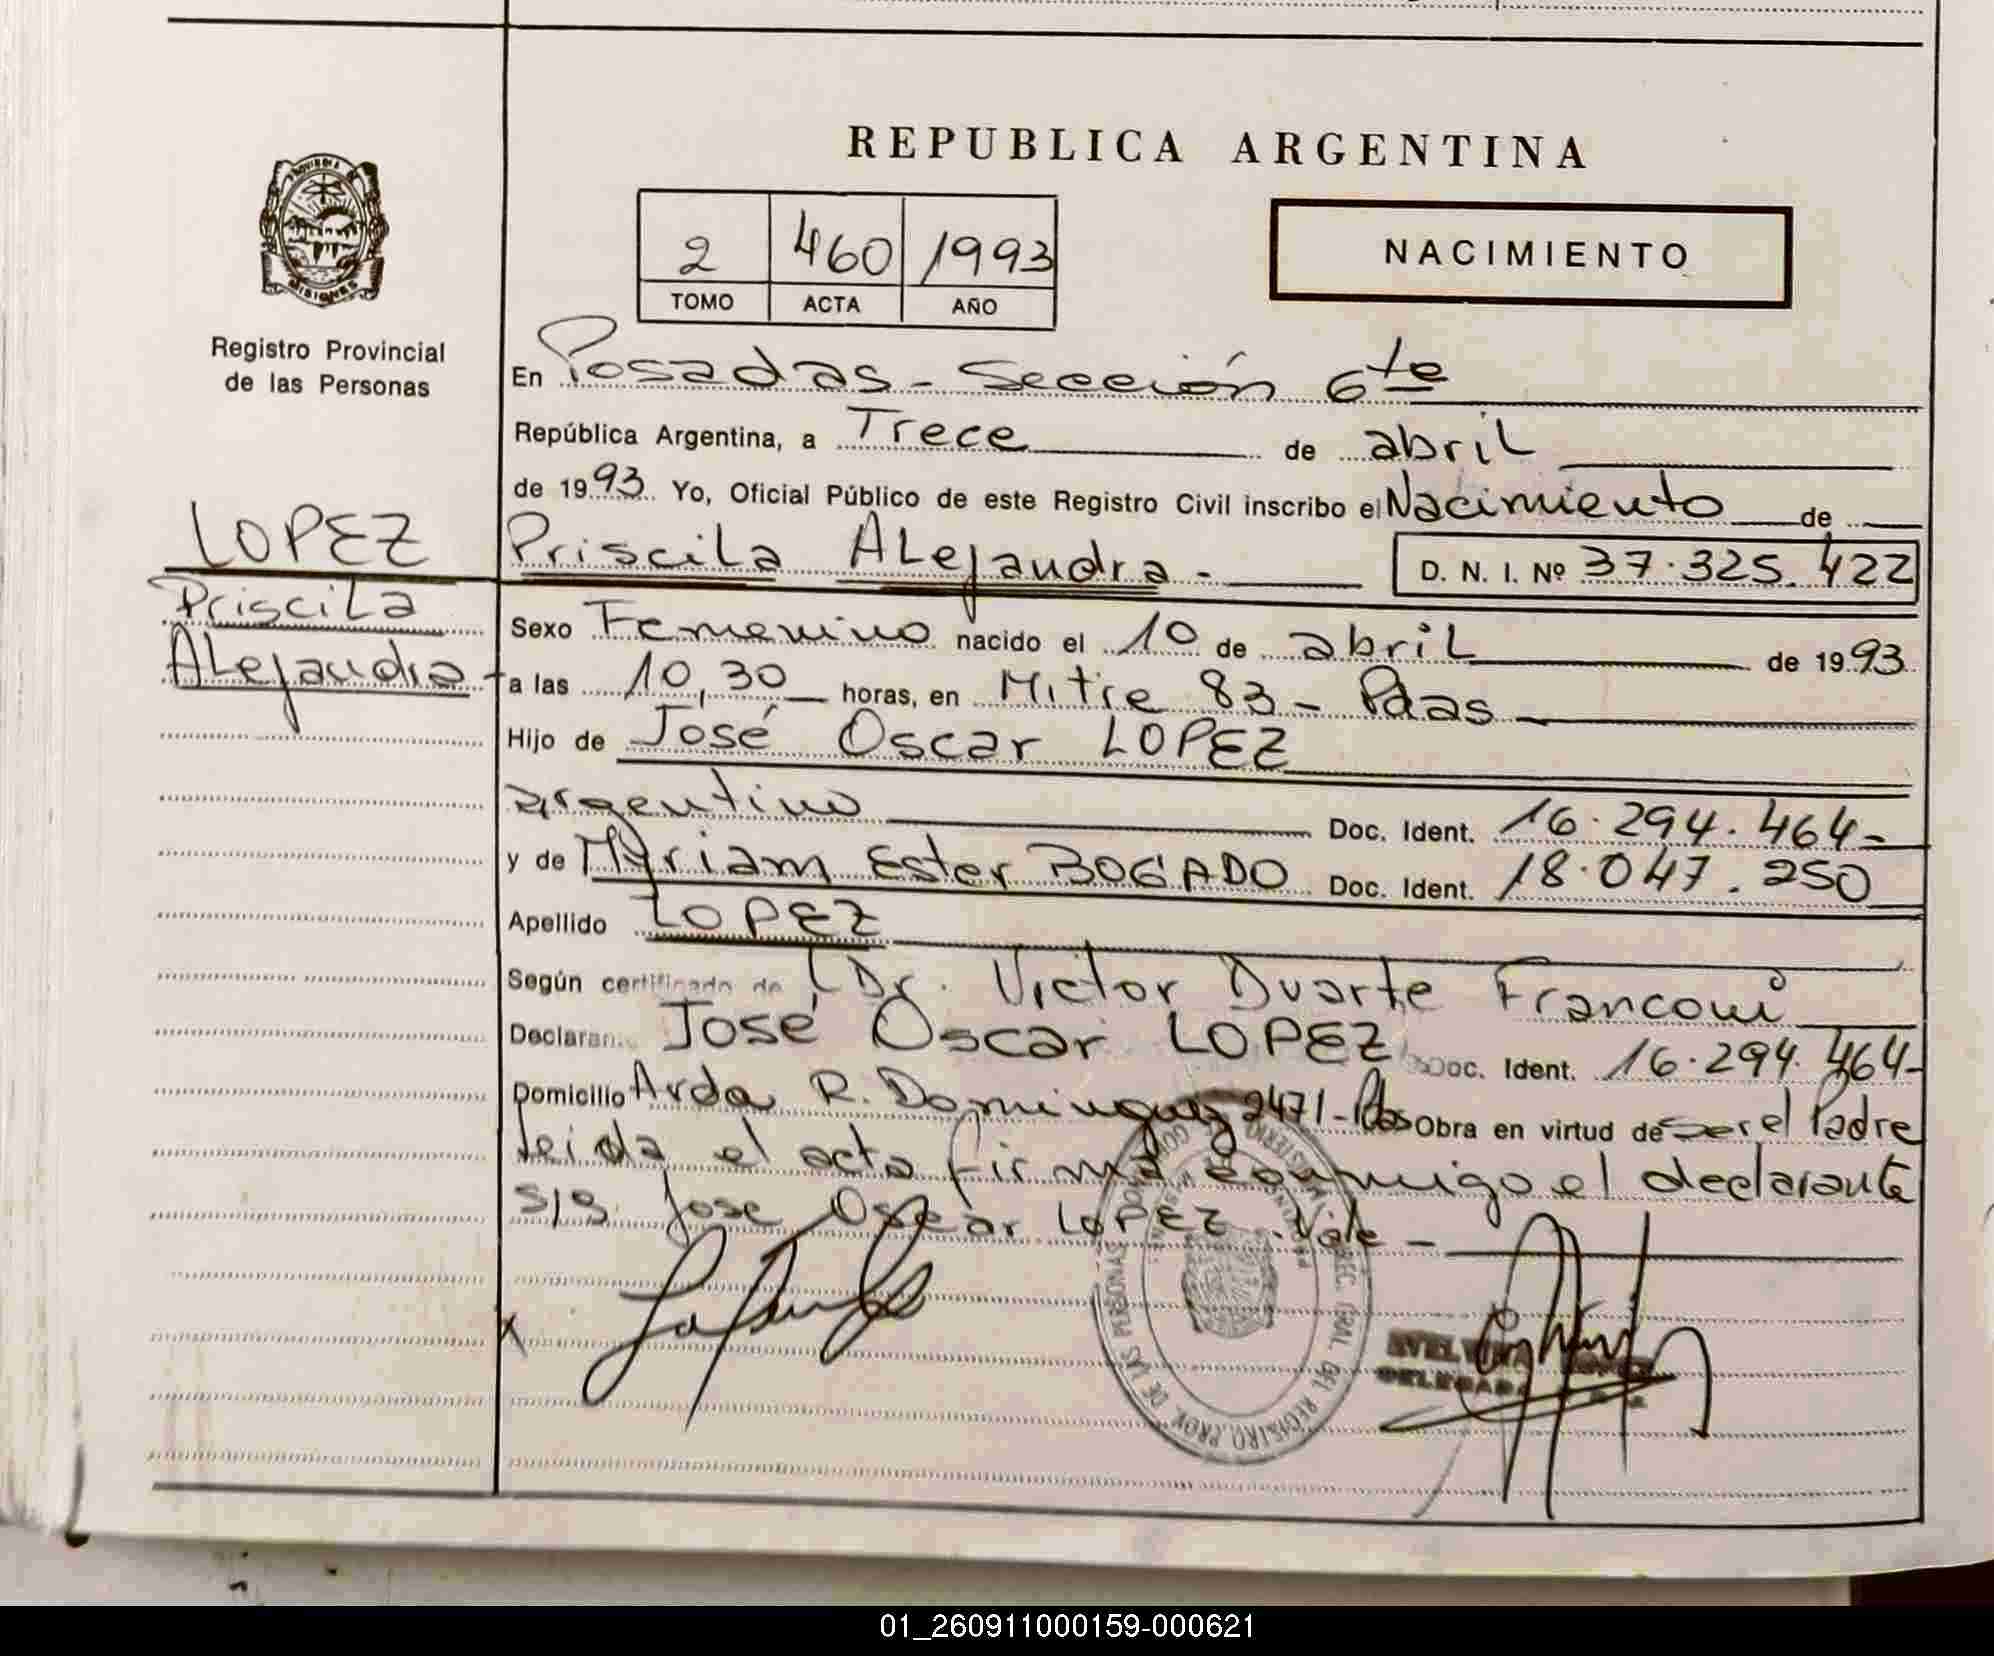 REPUBLICA ARGENTINA
PROVINCIA DE MISIONES
Registro Provincial
de las Personas
2 460 1993
TOMO ACTA AÑO
NACIMIENTO
En Posadas - Sección 6ta
República Argentina, a Trece de abril
de 1993 Yo, Oficial Público de este Registro Civil inscribo el Nacimiento de
LOPEZ
Priscila
Alejandra
Priscila Alejandra - D. N. I. Nº 37.325.422
Sexo Femenino nacido el 10 de abril de 1993
a las 10,30 horas, en Mitre 83 - Pdas -
Hijo de José Oscar LOPEZ
argentino Doc. Ident. 16.294.464-
y de Myriam Ester BOGADO Doc. Ident. 18.047.250
Apellido LOPEZ
Según certificado de Dr. Victor Duarte Franconi
Declaran José Oscar LOPEZ Doc. Ident. 16.294.464-
Domicilio Avda R. Dominguez 2471 - Pdas Obra en virtud de ser el Padre
leida el acta firma conmigo el declarante
S/S José Oscar LOPEZ. Vale -
DELEGADA
01_260911000159-000621